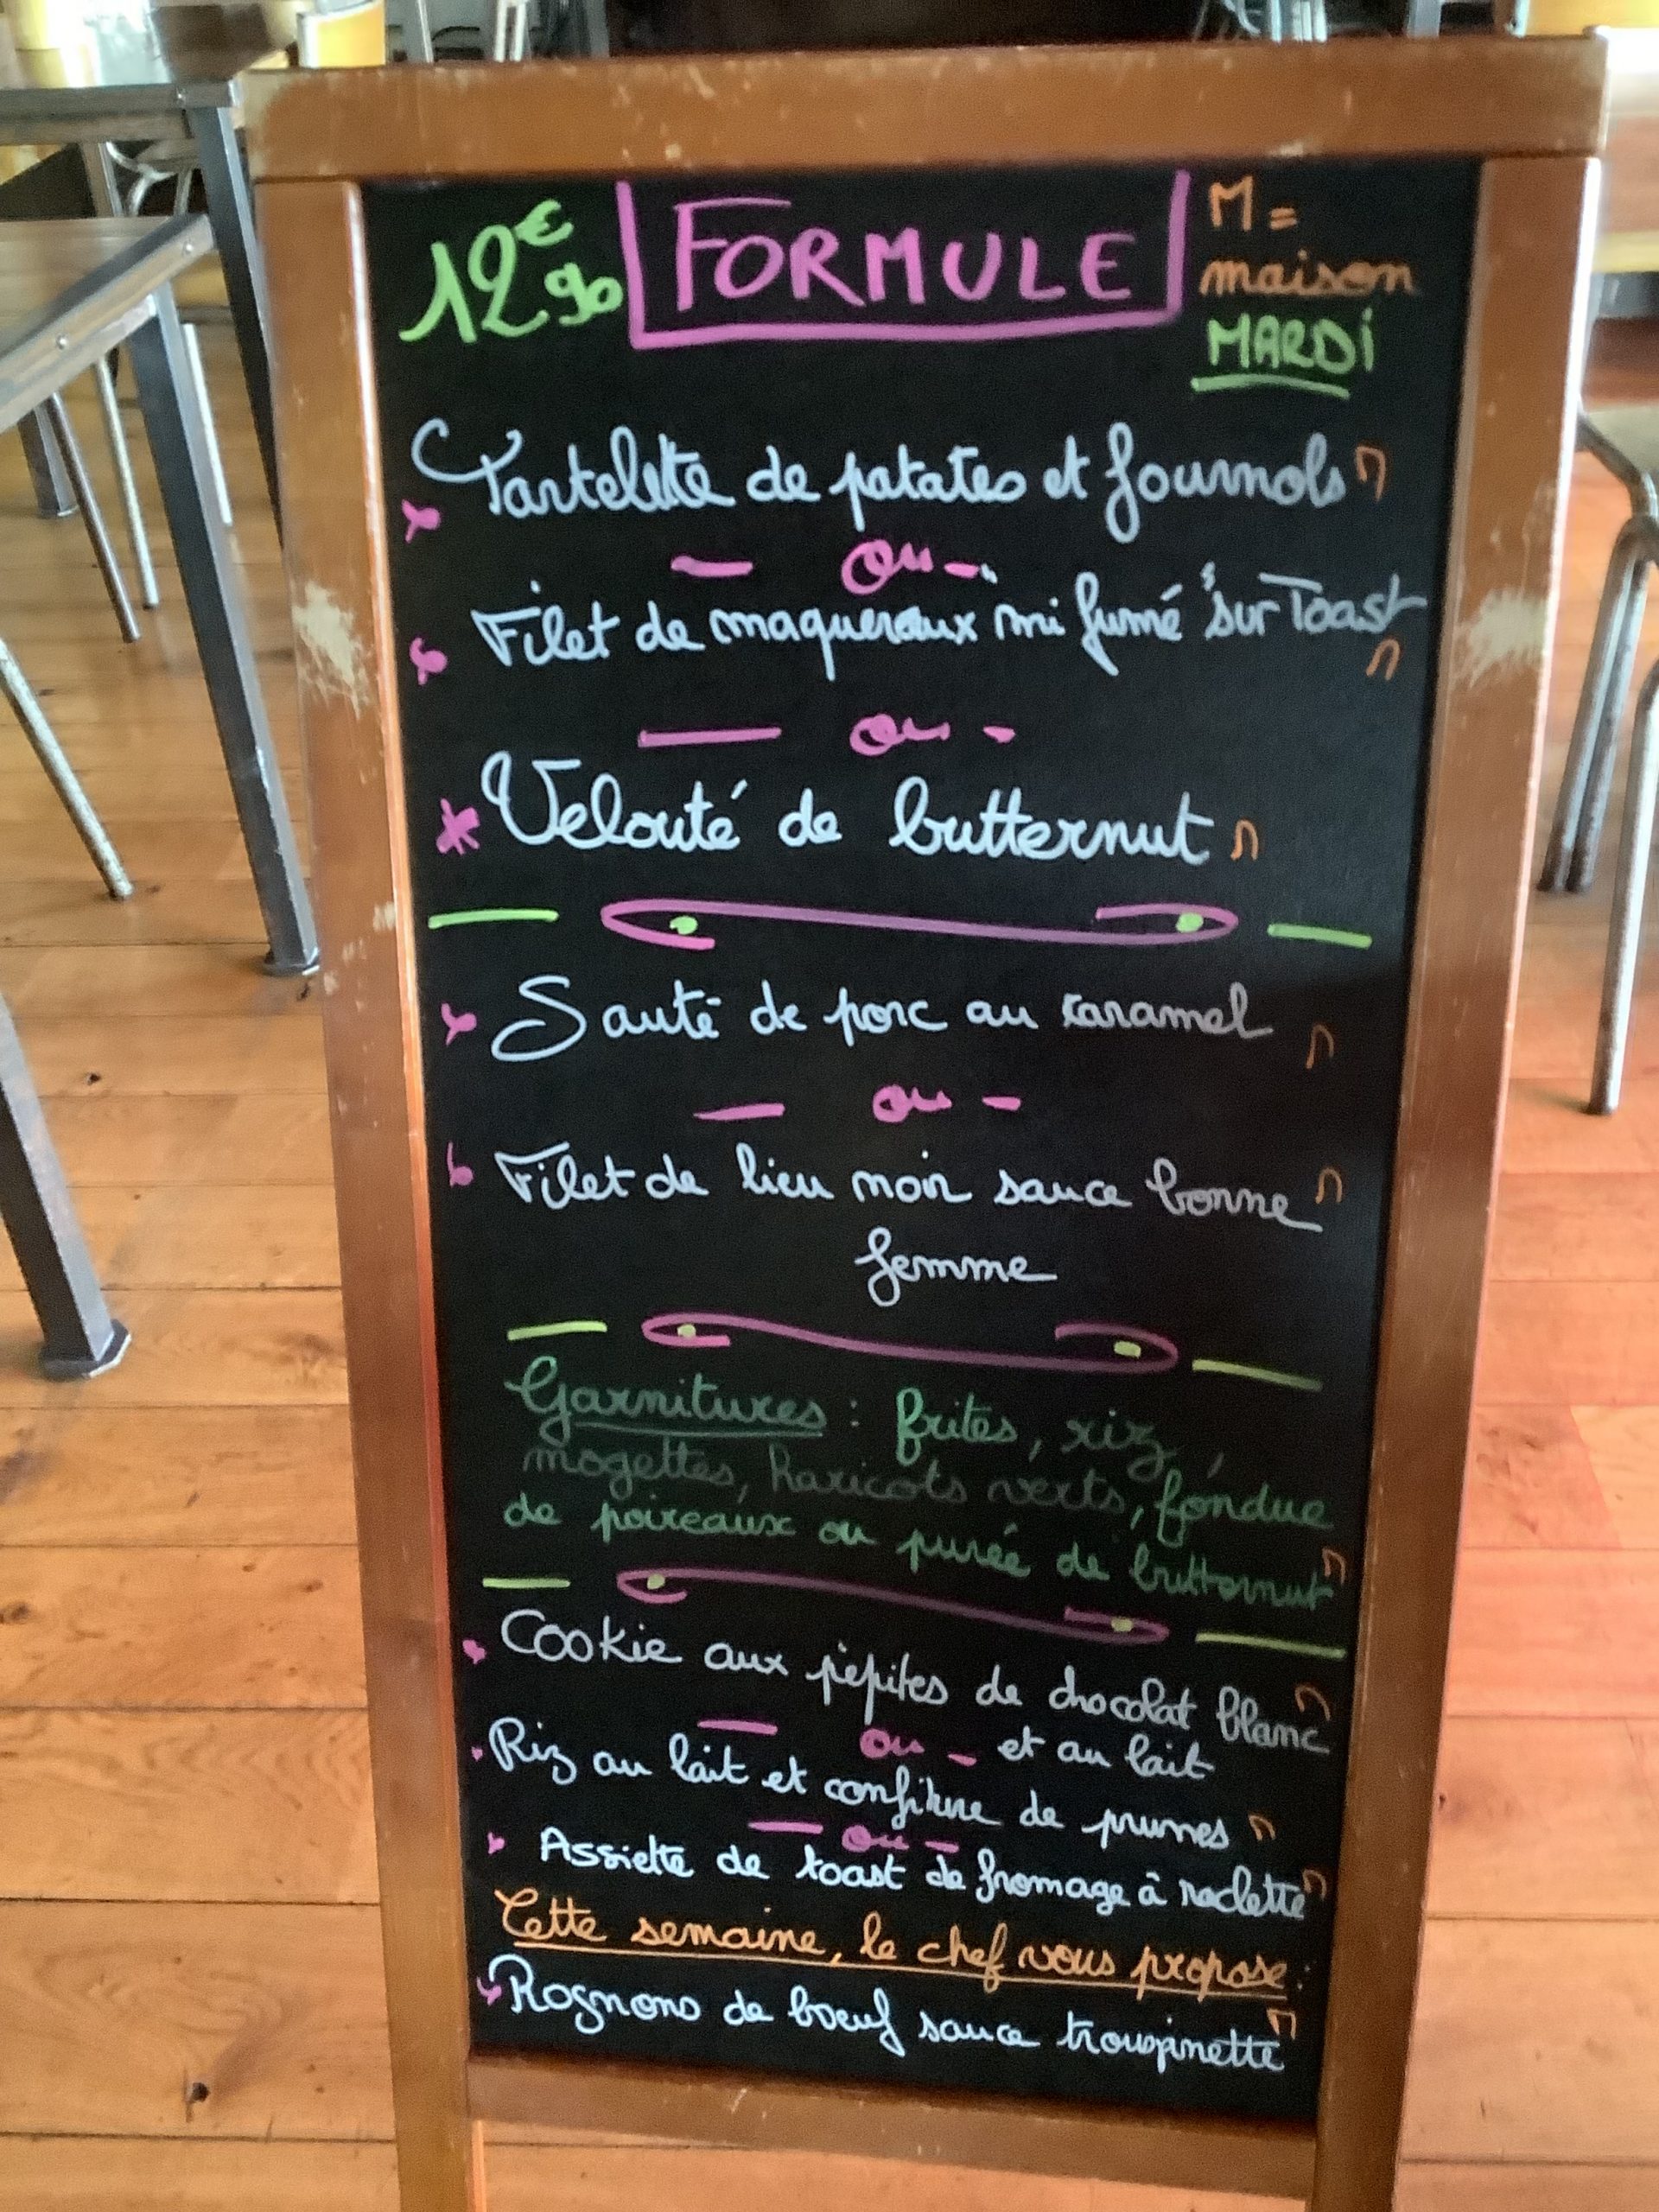 12€90 FORMULE M =
maison
MARDi
Tartelette de patates et fournols m
ou
Filet de maquereaux mi fumé sur Toast
m
ou
Velouté de butternut m
Sauté de porc au caramel m
ou
Filet de lieu noir sauce bonne m
femme
Garnitures : frites, riz,
mogettes, haricots verts, fondue
de poireaux ou purée de butternut m
Cookie aux pépites de chocolat blanc m
ou et au lait
Riz au lait et confiture de prunes m
ou
Assiette de toast de fromage à raclette m
Cette semaine, le chef vous propose :
Rognons de boeuf sauce trouspinette m